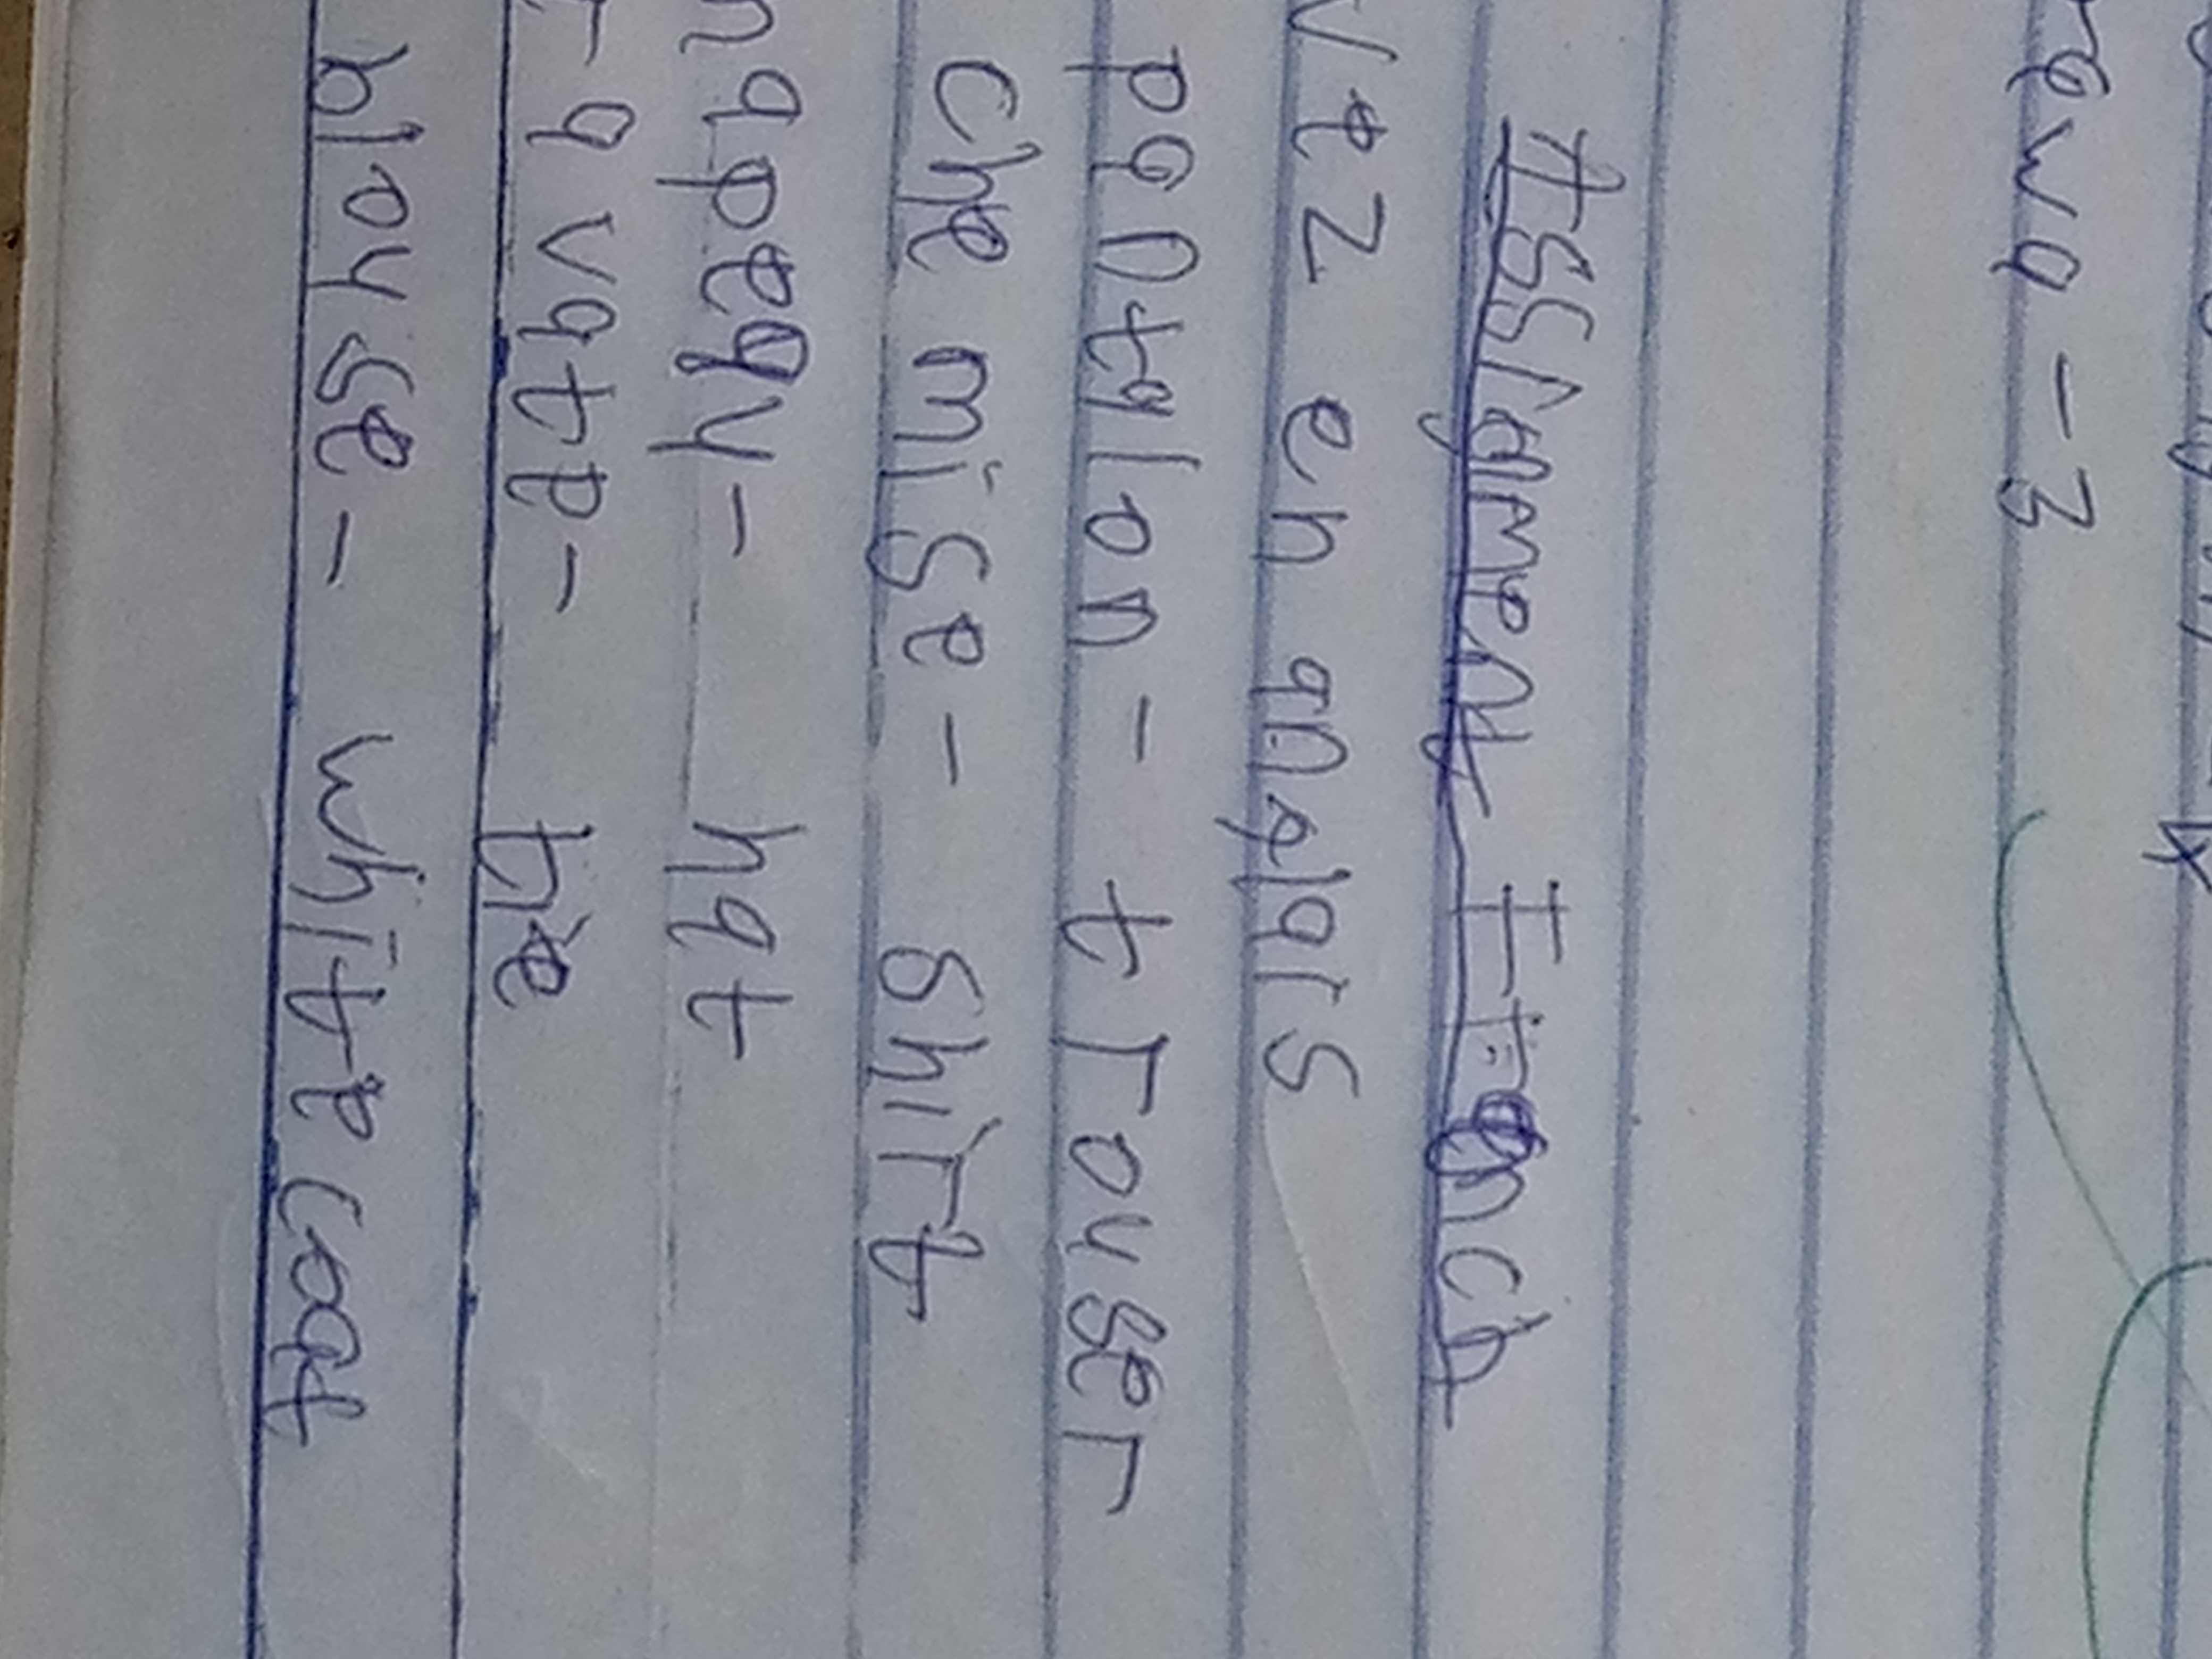 rewa - 3
Assignment French
vez en anglais
pantalon - trouser
Chemise - shirt
napeau - hat
ravate - tie
blouse - white coat